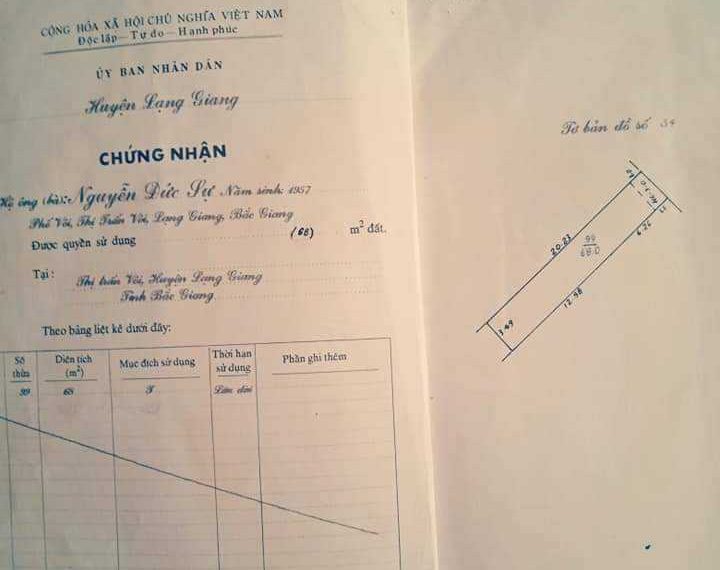 CỘNG HÒA XÃ HỘI CHỦ NGHĨA VIỆT NAM
Độc lập - Tự do - Hạnh phúc
ỦY BAN NHÂN DÂN
Huyện Lạng Giang
CHỨNG NHẬN
Hộ ông (bà): Nguyễn Đức Sự Năm sinh: 1957
Phố Vôi, Thị Trấn Vôi, Lạng Giang, Bắc Giang
Được quyền sử dụng (68) m² đất.
Tại: Thị trấn Vôi, Huyện Lạng Giang
Tỉnh Bắc Giang
Theo bảng liệt kê dưới đây:
Số thửa Diện tích (m²) Mục đích sử dụng Thời hạn sử dụng Phần ghi thêm
99 68 T Lâu dài
Tờ bản đồ số 34
20.23
99
68.0
6.26
12.98
3.49